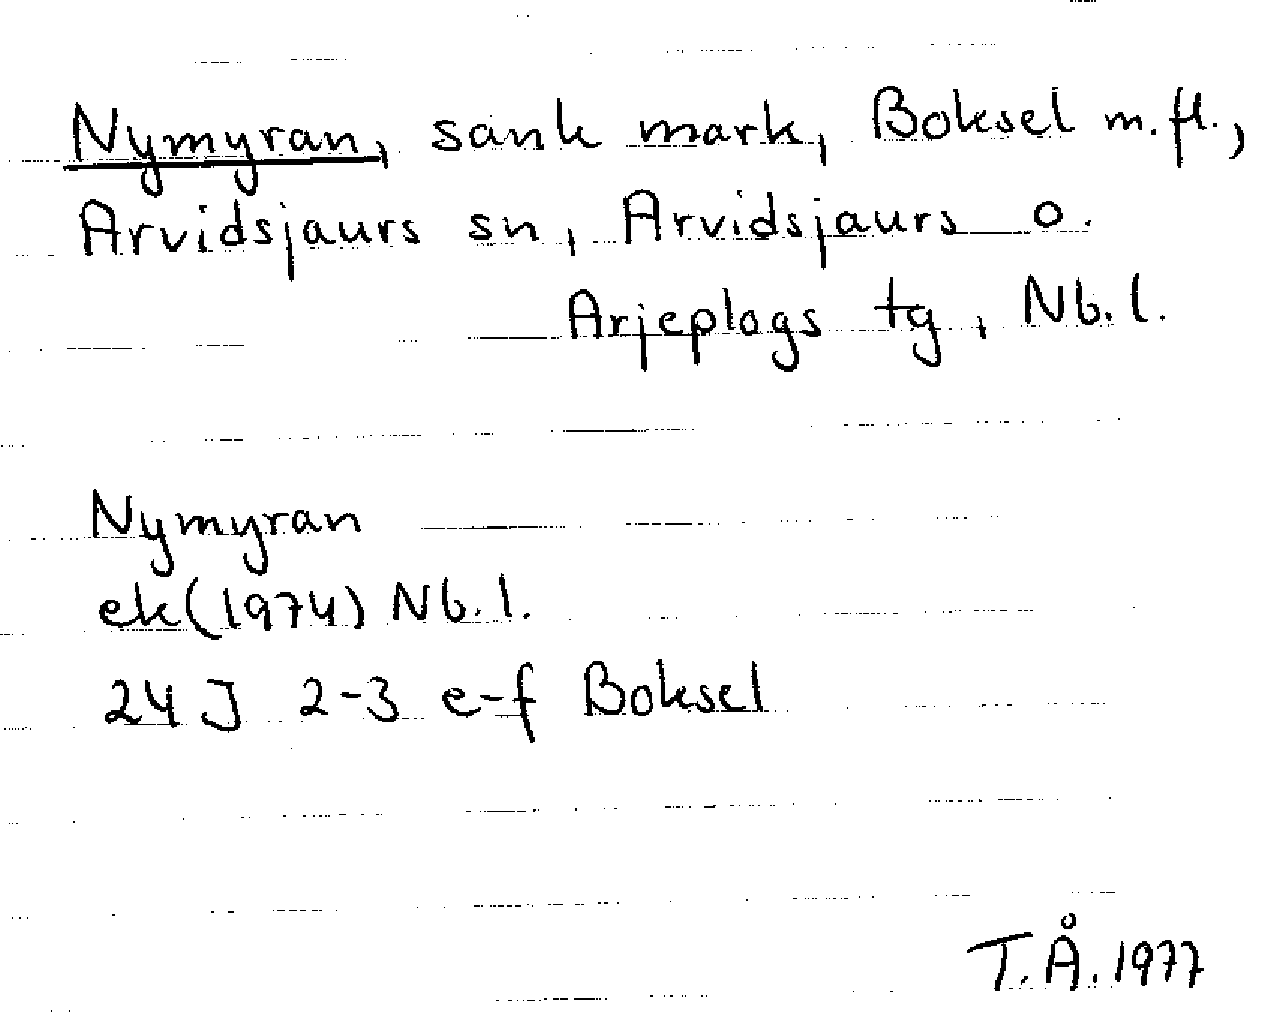 Nymyran, sank mark, Boksel m.fl.,
Arvidsjaurs sn, Arvidsjaurs o.
Arjeplogs tg, Nb.l.
Nymyran
ek (1974) Nb.l.
24 J 2-3 e-f Boksel
T.Å. 1977